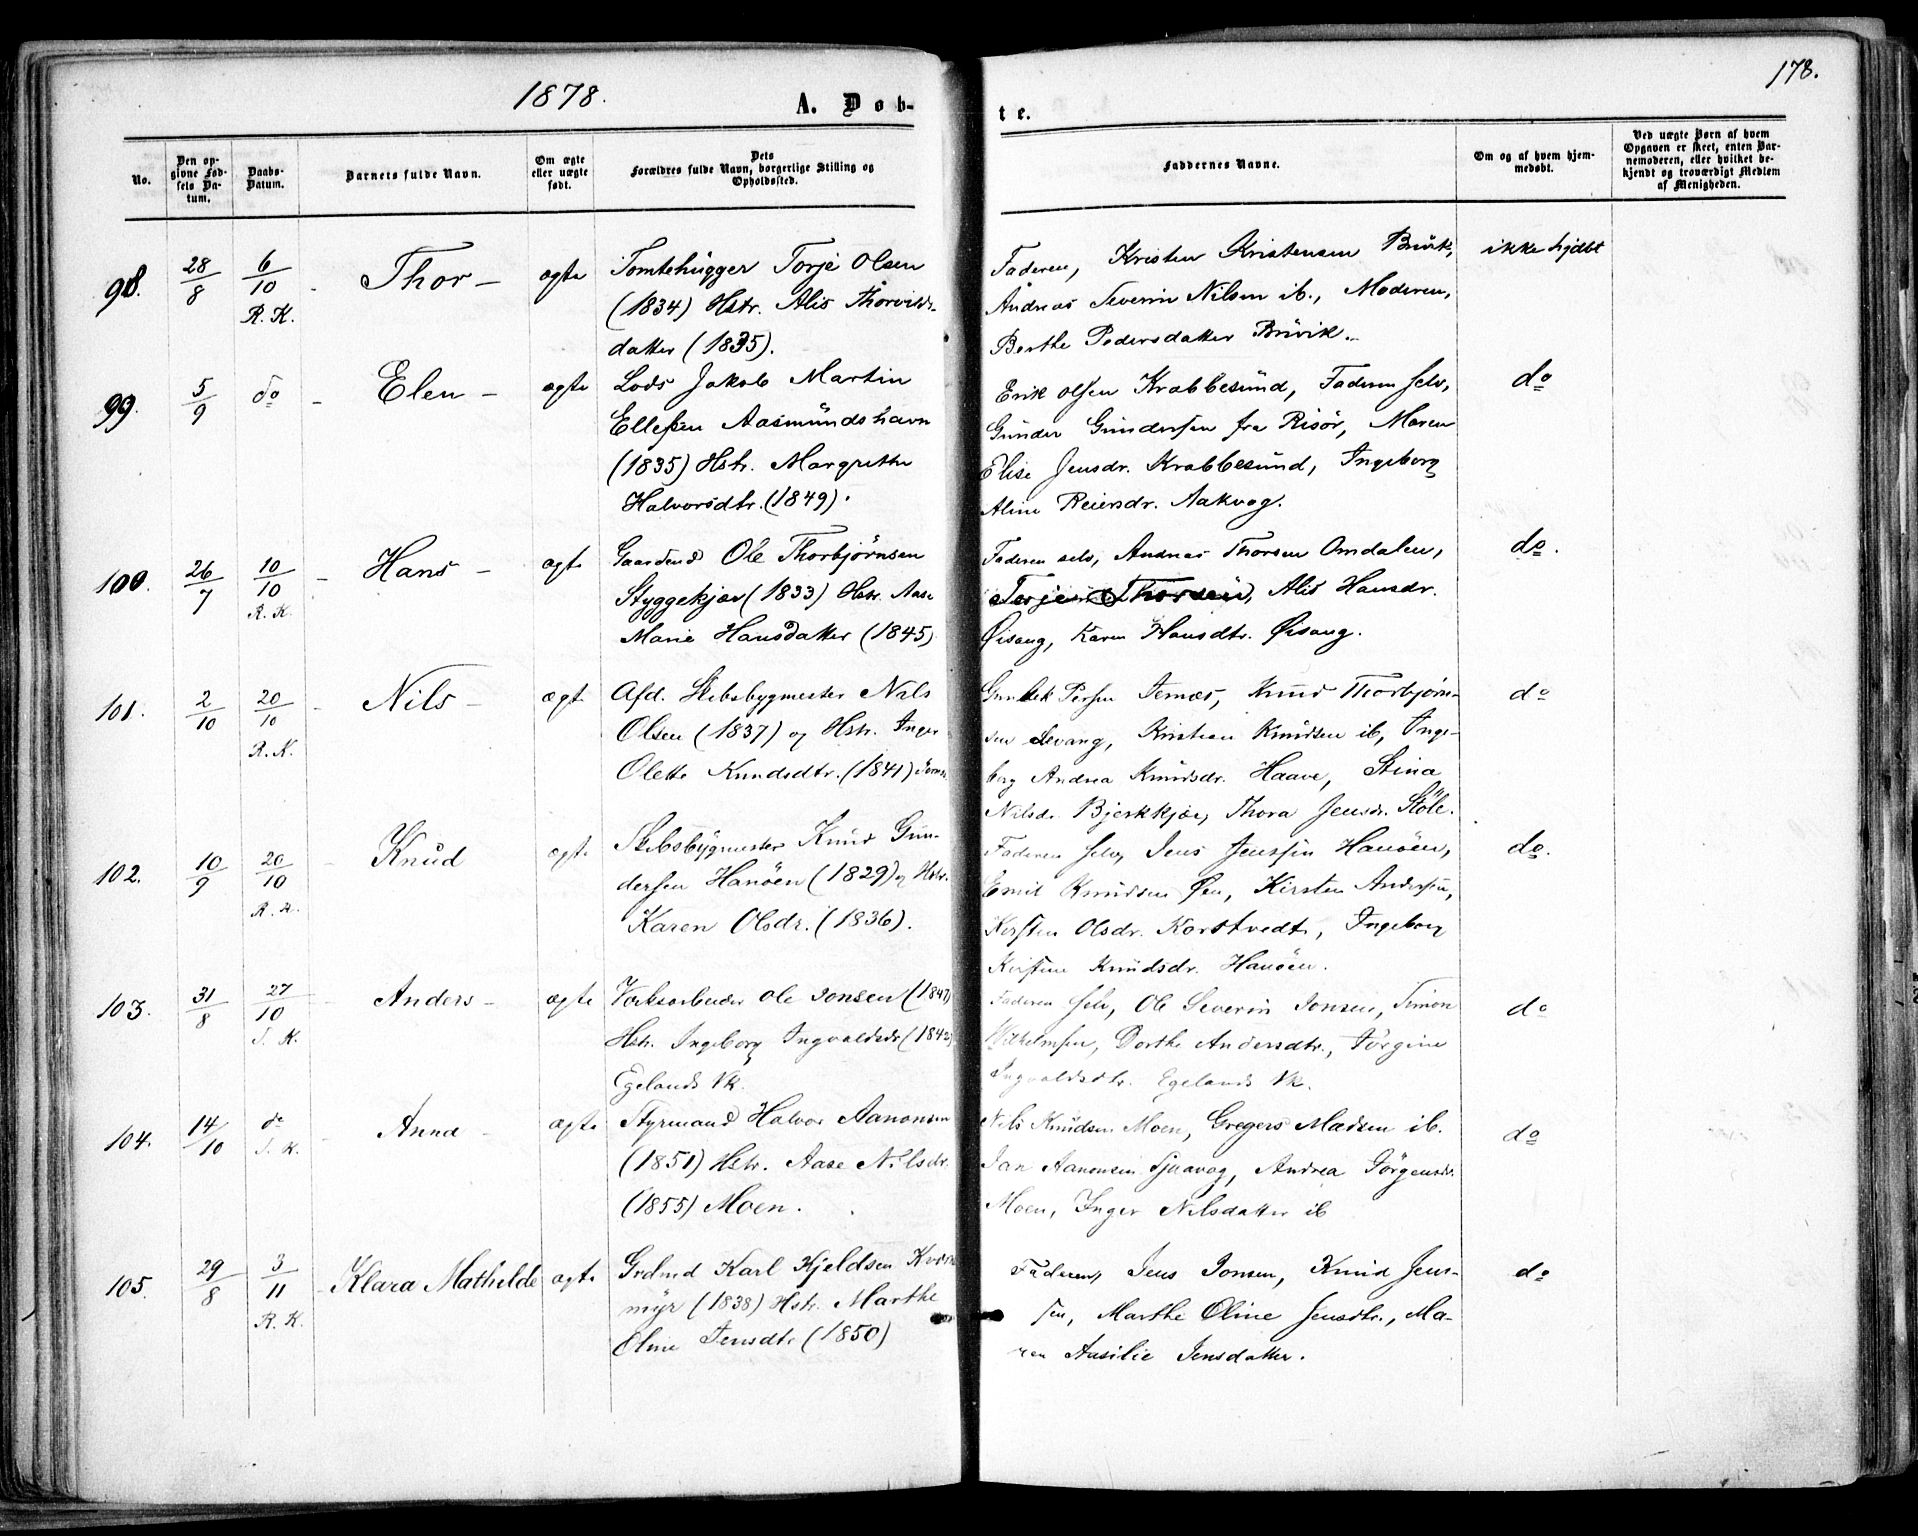 1878.
A. Døb-
te.
178.
No.
Den op-
givne Fød-
sels Da-
tum.
Daabs-
Datum.
Barnets fulde Navn.
Om ægte
eller uægte
født.
Dets
Forældres fulde Navn, borgerlige Stilling og
Opholdssted.
Faddernes Navne.
Om og af hvem hjem-
medøbt.
Ved uægte Børn af hvem
Opgaven er skeet, enten Bar-
nemoderen, eller hvilket be-
kjendt og troværdigt Medlem
af Menigheden.
98. 28/8 6/10 R. K. Thor - ægte
Tomtehugger Torje Olsen
(1834) Hstr. Alis Thorvilds-
datter (1835).
Faderen, Kristen Kristensen Buvik,
Andreas Severin Nilsen ib., Moderen,
Berthe Pedersdatter Buvik.
ikke hjdbt
99. 5/9 do - Elen - ægte
Lods Jakob Martin
Ellefsen Aasmundshavn
(1835) Hstr. Margrethe
Halvorsdtr. (1849).
Erik Olsen Krabbesund, Faderen selv,
Gunder Gundersen fra Risør, Maren
Elise Jensdr. Krabbesund, Ingeborg
Aline Reiersdr. Aakvog.
do
100. 26/7 10/10 R. K. - Hans - ægte
Gaardmd Ole Thorbjørnsen
Styggekjær (1833) Hstr. Aase
Marie Hansdatter (1845)
Faderen selv, Andreas Thorsen Omdalen,
Terje Thorsen, Alis Hansdr.
Øisang, Karen Hansdtr. Øisang.
do.
101. 2/10 20/10 R. K. - Nils - ægte
Afd. Skibsbygmester Nils
Olsen (1837) og Hstr. Inger
Olette Knudsdtr. (1841)
Gunbek Persen Ternæs, Knud Thorbjørn-
sen Levang, Kristian Knudsen ib, Inge-
borg Andrea Knudsdr. Haave, Stina
Nilsdr. Bjerkkjær, Thora Jensdr. Støle.
do
102. 10/9 20/10 R. K. - Knud ægte
Skibsbygmester Knud Gun-
dersen Hanøen (1829) og Hstr.
Karen Olsdr. (1836).
Faderen selv, Jens Jenssen Hanøen,
Emil Knudsen Øen, Kirsten Andersen,
Kirsten Olsdr. Korstvedt, Ingeborg
Kirstine Knudsdr. Hanøen.
do.
103. 31/8 27/10 S. K. - Anders - ægte
Verksarbeider Ole Jonsen (1847)
Hstr. Ingeborg Ingvaldsdr (1842)
Egelands Vk.
Faderen selv, Ole Severin Jonsen, Simon
Wilhelmsen, Dorthe Andersdtr., Jørgine
Ingvaldsdtr. Egelands Vk.
do
104. 14/10 do S. K. - Anna - ægte
Styrmand Halvor Aanonsen
(1851) Hstr. Aase Nilsdr.
(1855) Moen.
Nils Knudsen Moen, Gregers Madsen ib.
Jan Aanonsen Sjaavog, Andrea Jørgensdr.
Moen, Inger Nilsdatter ib
do
105. 29/8 3/11 R. K. - Klara Mathilde ægte
Grdmd Karl Kjeldsen Kværn
myr (1838) Hstr. Marthe
Oline Jensdtr (1850)
Faderen, Jens Jonsen, Knud Jens-
sen, Marthe Oline Jensdtr., Ma-
ren Aasilie Jensdatter.
do